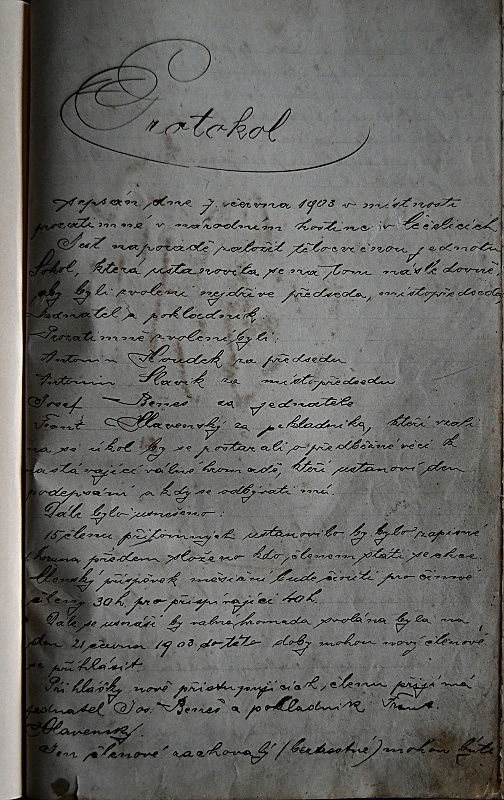 Protokol
sepsán dne 7. června 1903 v místnosti
prozatimné v národním hostinci v
Jest naporadě založit tělocvičnou jednotu
Sokol, která ustanovila se na tom následovně
aby byli zvoleni nejdříve předseda, místopředseda,
Jednatel a pokladník.
Prozatimně zvoleni byli:
Antonin Houdek za předsedu
Antonin Slavik za místopředsedu
Josef Beneš za jednatele
Frant Hlavenský za pokladníka, kteří vzali
na se úkol by se postarali o předběžné věci k
nastávající valné hromadě, kteří ustanoví den
podepsání a kdy se odbývati má.
Dále bylo usneseno:
15 členu přítomných ustanovilo by bylo zápisné
1 koruna předem složeno kdo členem státi se chce.
Členský příspěvek měsíční bude činiti pro činné
členy 30h. pro přispívající 40h.
Dále se usnáší by valná hromada svolána byla na
den 21 června 1903 do této doby mohou nový členové
se přihlásit.
Přihlášky nově přistupujících členu přijímá
jednatel Jos. Beneš a pokladník Frant.
Hlavenský.
Jen členové zachovalý (beztrestné) mohou býti